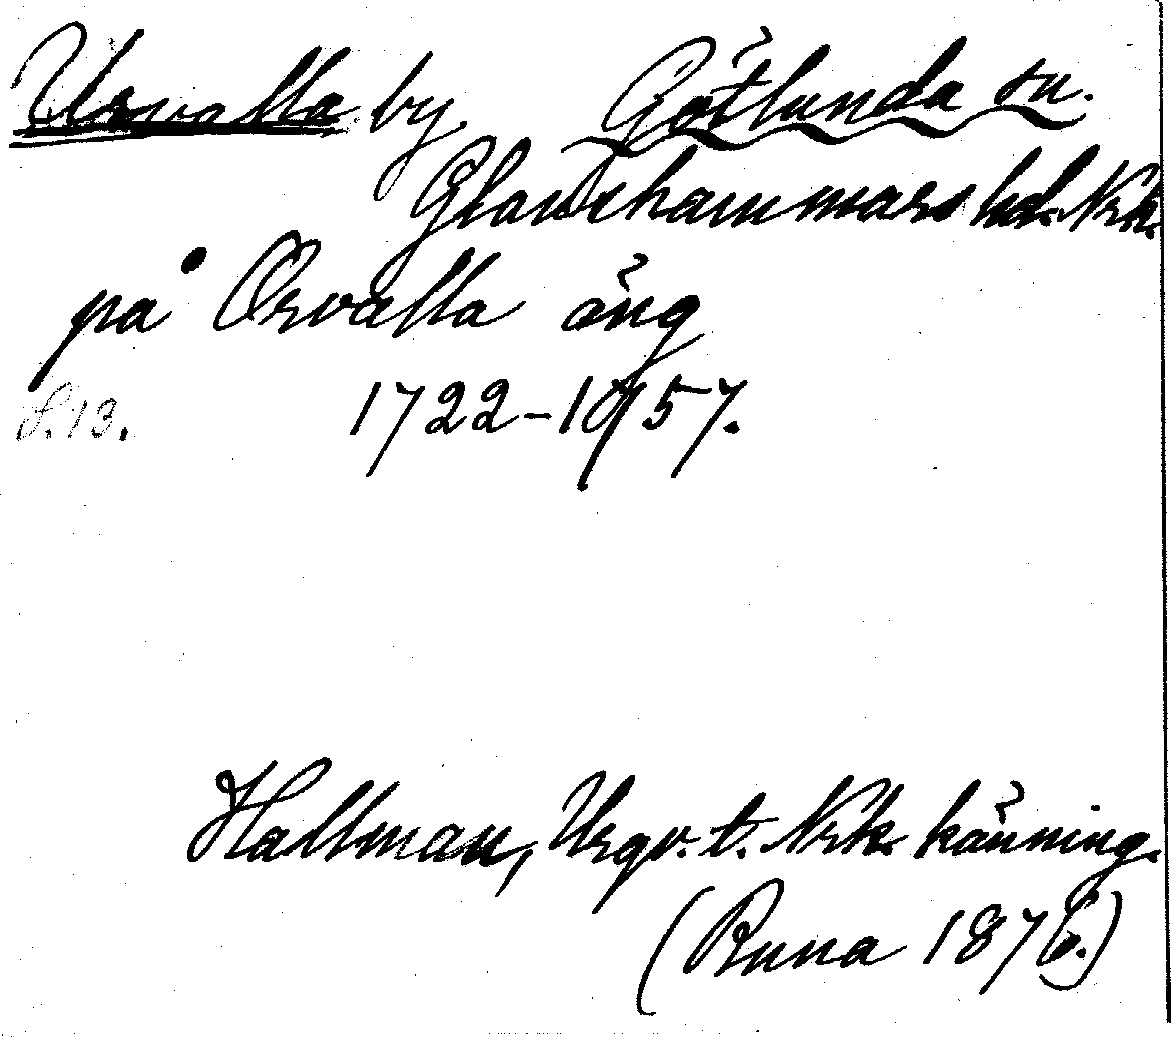 Urvalla by. Götlunda sn.
Glanshammars hd. Nrk.
på Orvalla äng
S. 13. 1722-1757.
Hallman, Urgv. t. Nrk. känning.
(Runa 1876.)